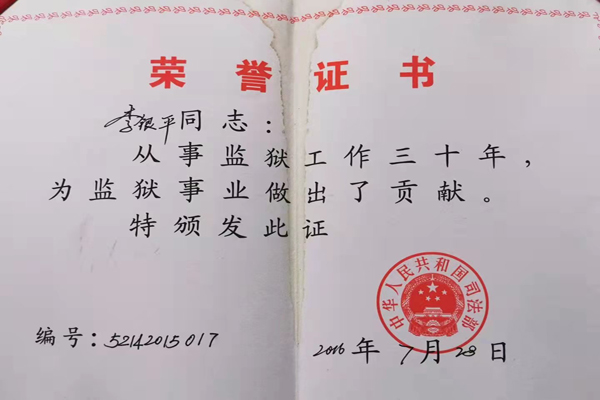 荣誉证书
李银平同志：
从事监狱工作三十年，
为监狱事业做出了贡献。
特颁发此证
中华人民共和国司法部
编号：52142015017
2016年7月28日